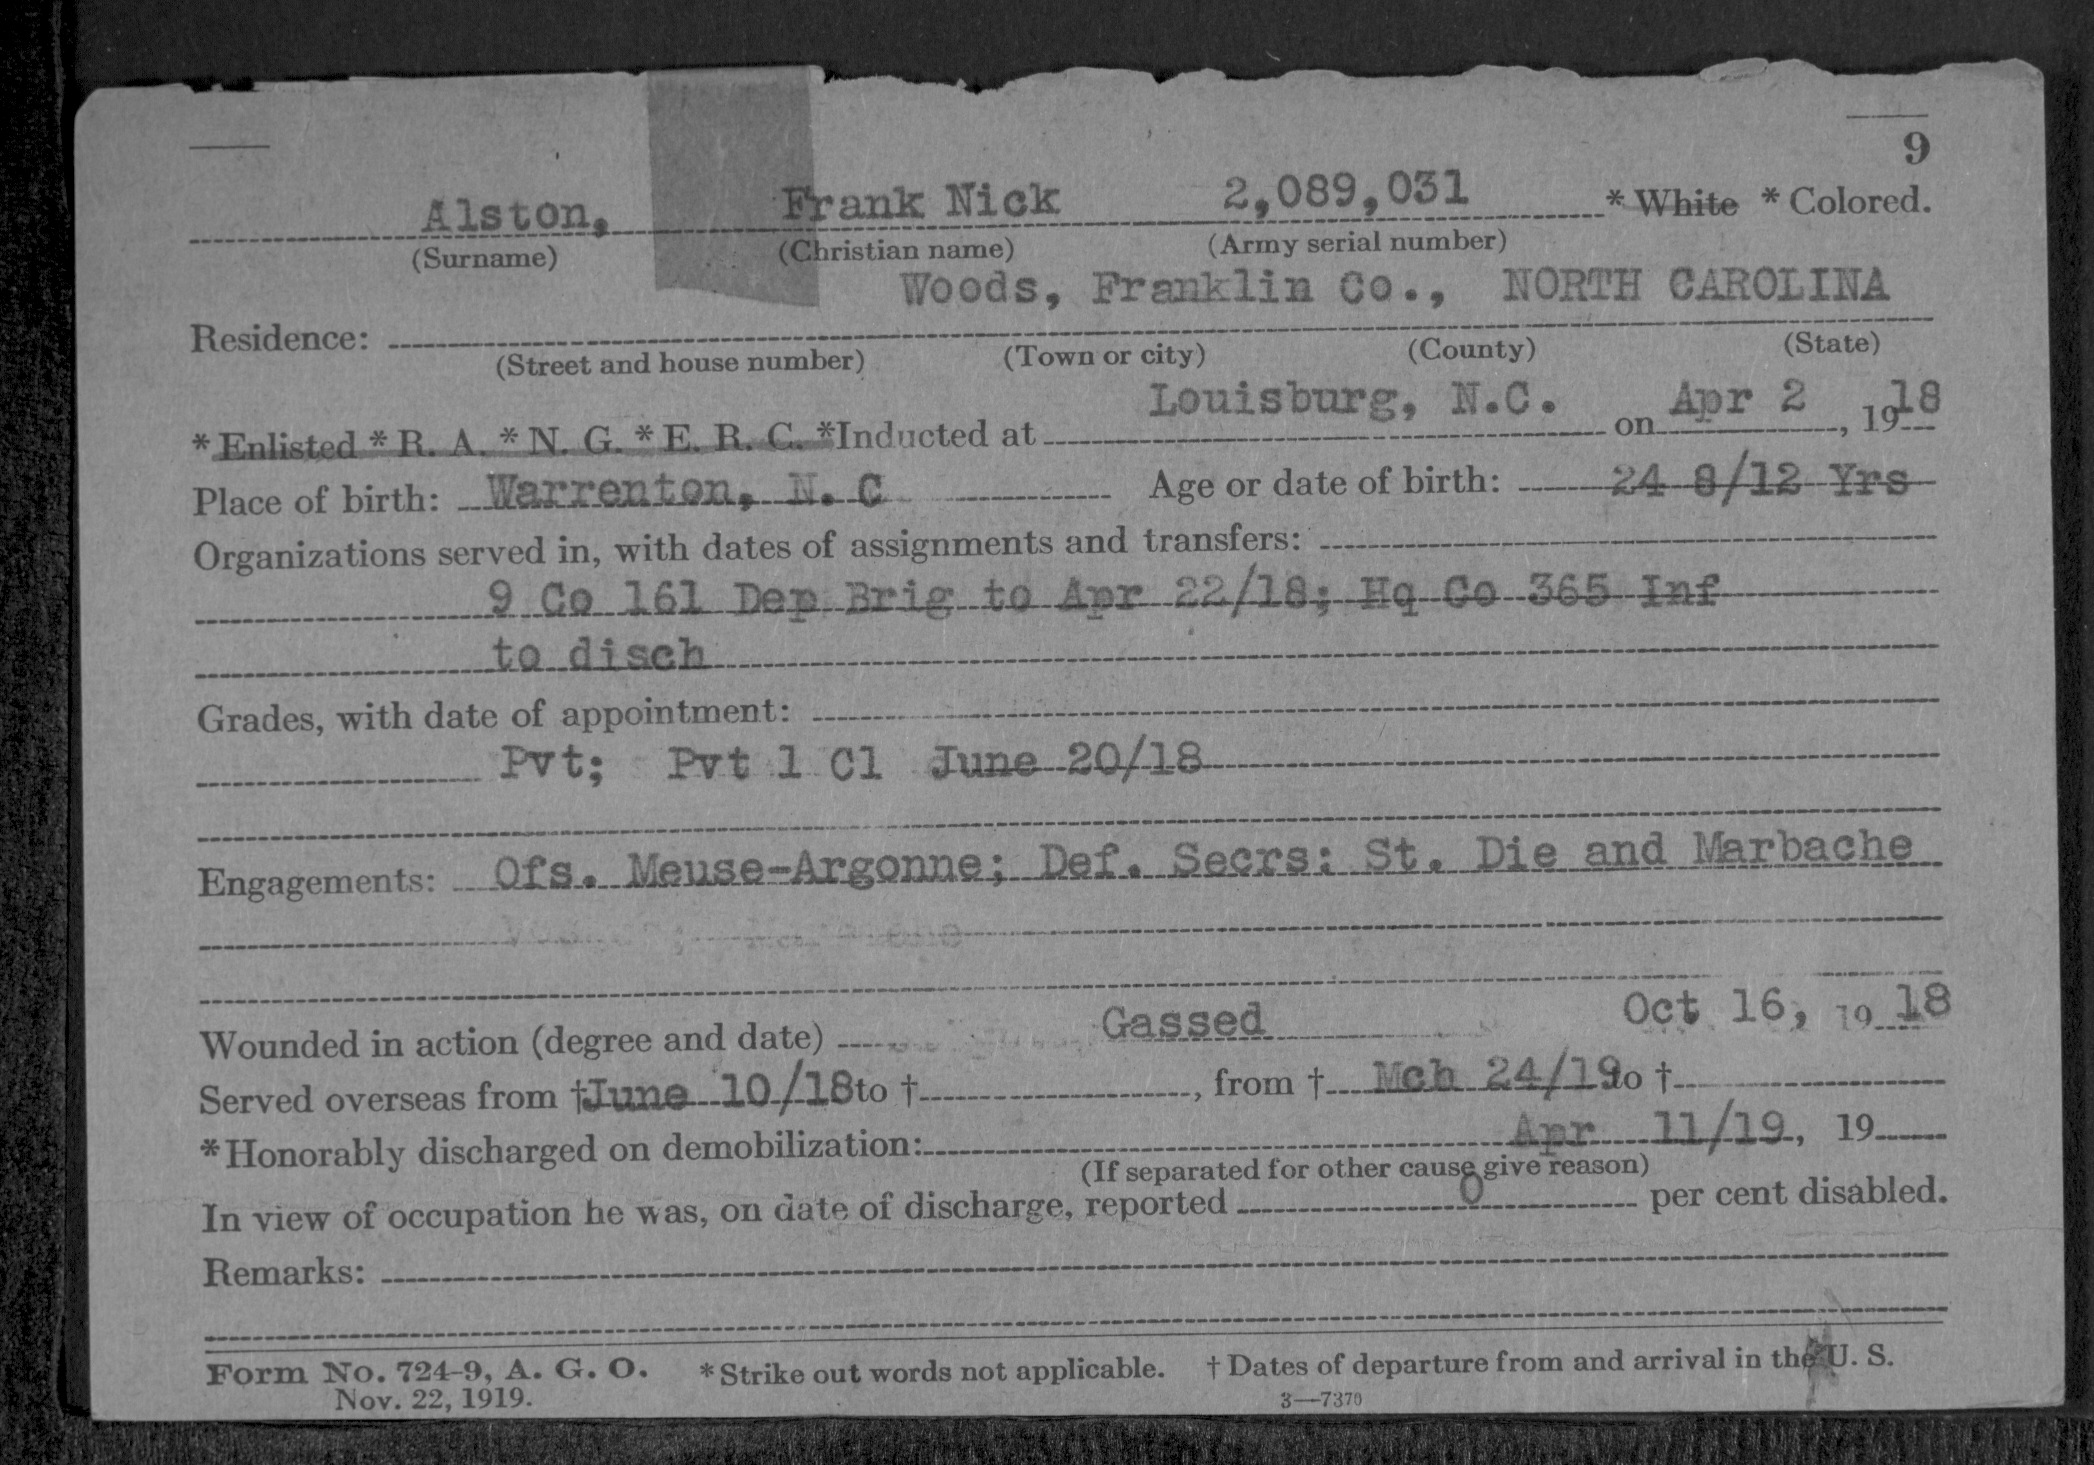 9
Alston, Frank Nick 2,089,031 * White * Colored.
(Surname) (Christian name) (Army serial number)
Woods, Franklin Co., NORTH CAROLINA
Residence:
(Street and house number) (Town or city) (County) (State)
* Enlisted * R. A. * N. G. * E. R. C. *Inducted at Louisburg, N.C. on Apr 2, 1918
Place of birth: Warrenton, N. C Age or date of birth: 24 8/12 Yrs
Organizations served in, with dates of assignments and transfers:
9 Co 161 Dep Brig to Apr 22/18; Hq Co 365 Inf
to disch
Grades, with date of appointment:
Pvt; Pvt 1 Cl June 20/18
Engagements: Ofs. Meuse-Argonne; Def. Secrs: St. Die and Marbache
Wounded in action (degree and date) Gassed Oct 16, 1918
Served overseas from †June 10/18 to †, from † Mch 24/19 to †
*Honorably discharged on demobilization: Apr 11/19, 19
(If separated for other cause give reason)
In view of occupation he was, on date of discharge, reported 0 per cent disabled.
Remarks:
Form No. 724-9, A. G. O. * Strike out words not applicable. † Dates of departure from and arrival in the U. S.
Nov. 22, 1919. 3—7370